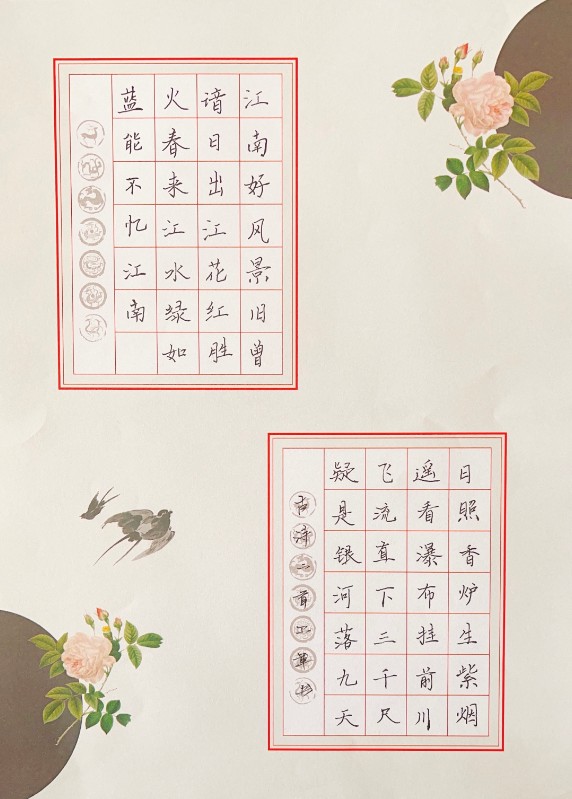 江南好风景旧曾
谙日出江花红胜
火春来江水绿如
蓝能不忆江南
日照香炉生紫烟
遥看瀑布挂前川
飞流直下三千尺
疑是银河落九天
古诗二首